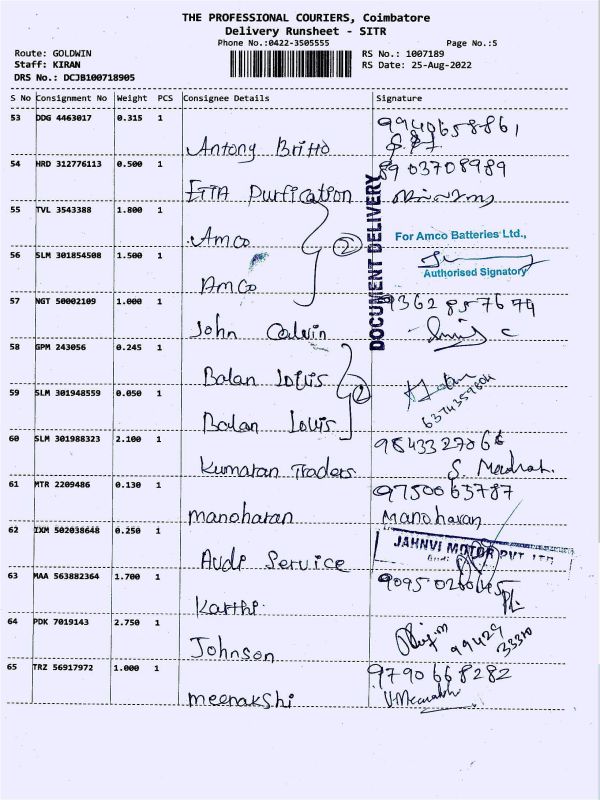 THE PROFESSIONAL COURIERS, Coimbatore
Delivery Runsheet - SITR
Phone No.:0422-3505555 Page No.:5
Route: GOLDWIN RS No.: 1007189
Staff: KIRAN RS Date: 25-Aug-2022
DRS No.: DCJB100718905
S No Consignment No Weight PCS Consignee Details Signature
53 DDG 4463017 0.315 1 Antony Britto 9940658861
54 HRD 312776113 0.500 1 Purfication 8903708989
DOCUMENT DELIVERY
55 TVL 3543388 1.800 1 Amco
For Amco Batteries Ltd.,
2
56 SLM 301854508 1.500 1 Amco
Authorised Signatory
57 NGT 50002109 1.000 1 John Calvin 9362857679
58 GPM 243056 0.245 1 Balan Louis
2
59 SLM 301948559 0.050 1 Balan Louis 6374359604
60 SLM 301988323 2.100 1 Kumaran Traders
61 MTR 2209486 0.130 1 manoharan 9750063787
Manoharan
62 IXM 502038648 0.250 1 Audi Service
JAHNVI MOTOR PVT LTD
63 MAA 563882364 1.700 1 Karthi
64 PDK 7019143 2.750 1 Johnson 99429 33310
65 TRZ 56917972 1.000 1 meenakshi 9790668282
V.Meenakshi